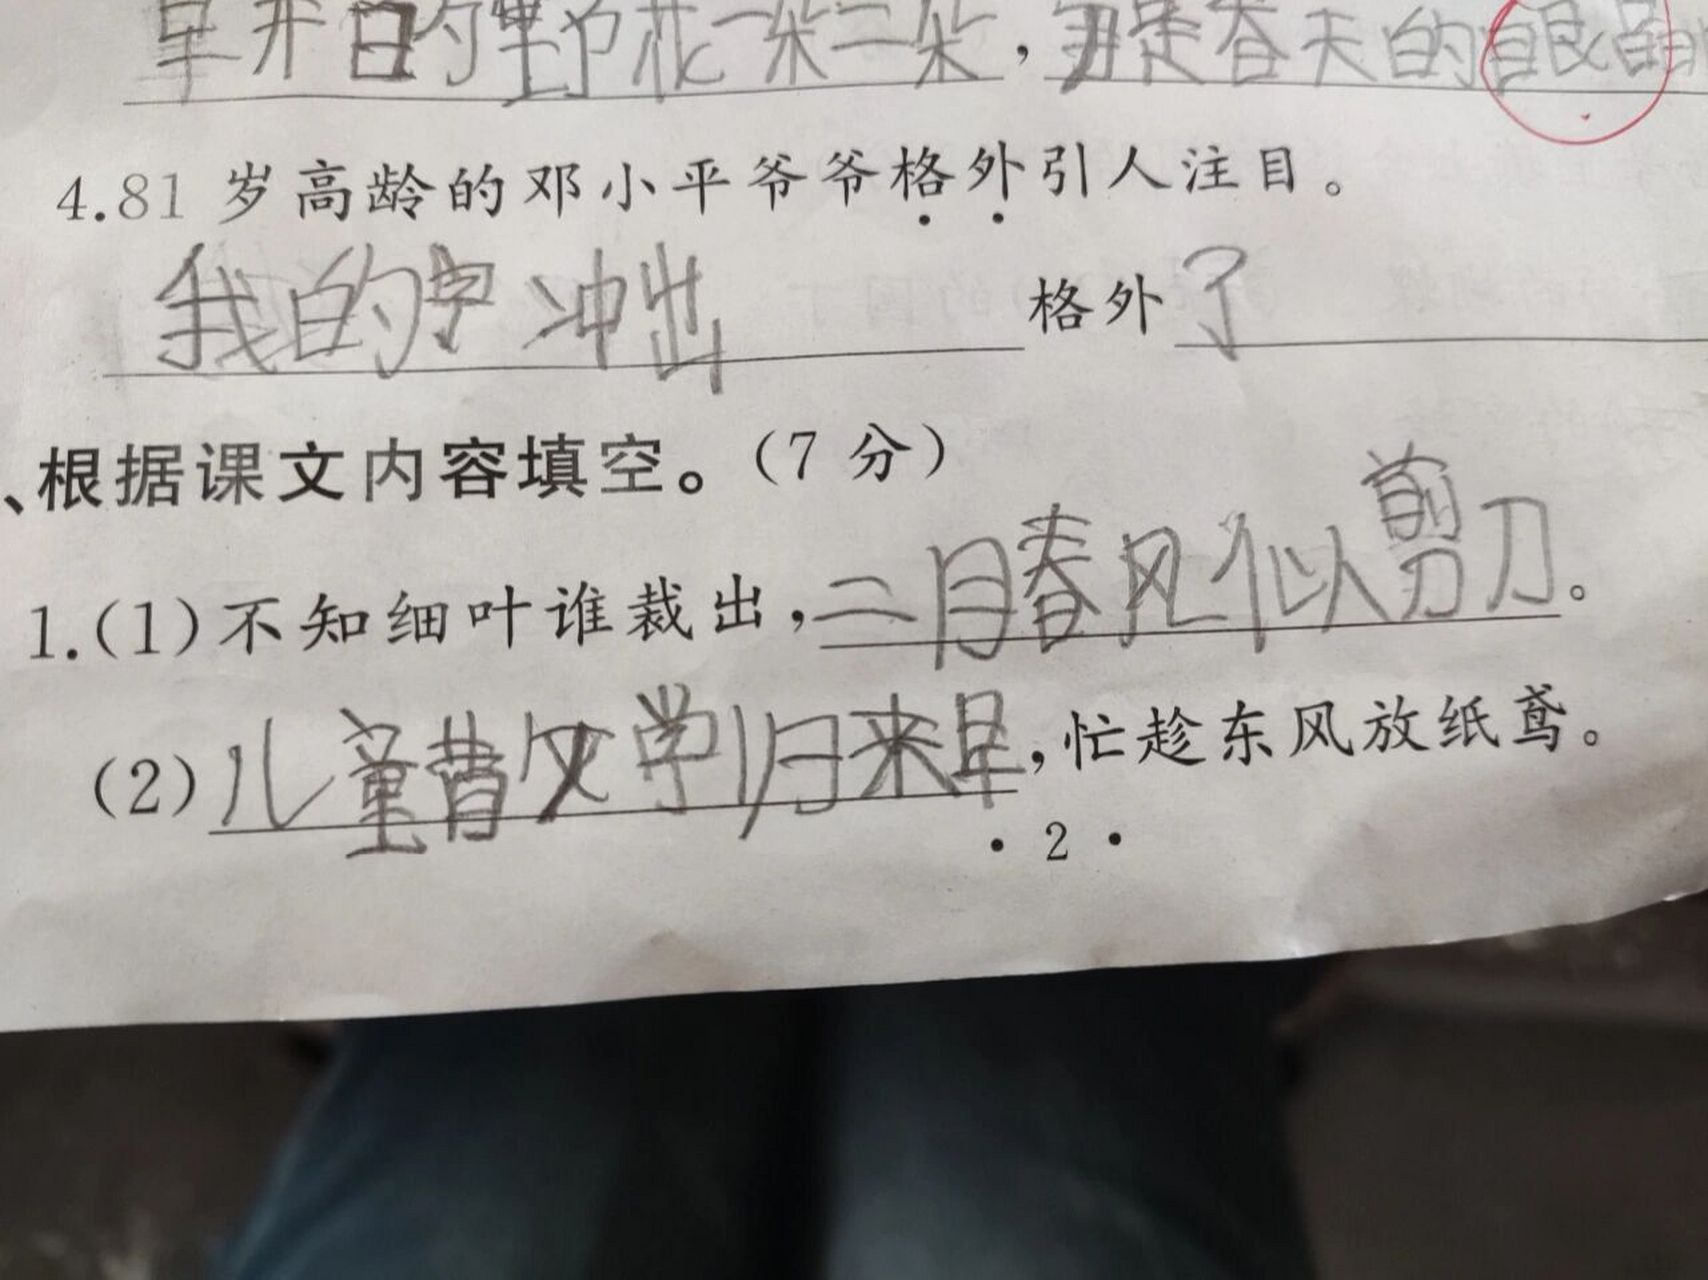 早开白的野花一朵二朵，那是春天的眼睛
4.81 岁高龄的邓小平爷爷格外引人注目。
我的字冲出格外了
、根据课文内容填空。（7 分）
1.(1)不知细叶谁裁出，二月春风似剪刀。
(2)儿童昔文学归来早，忙趁东风放纸鸢。
· 2 ·